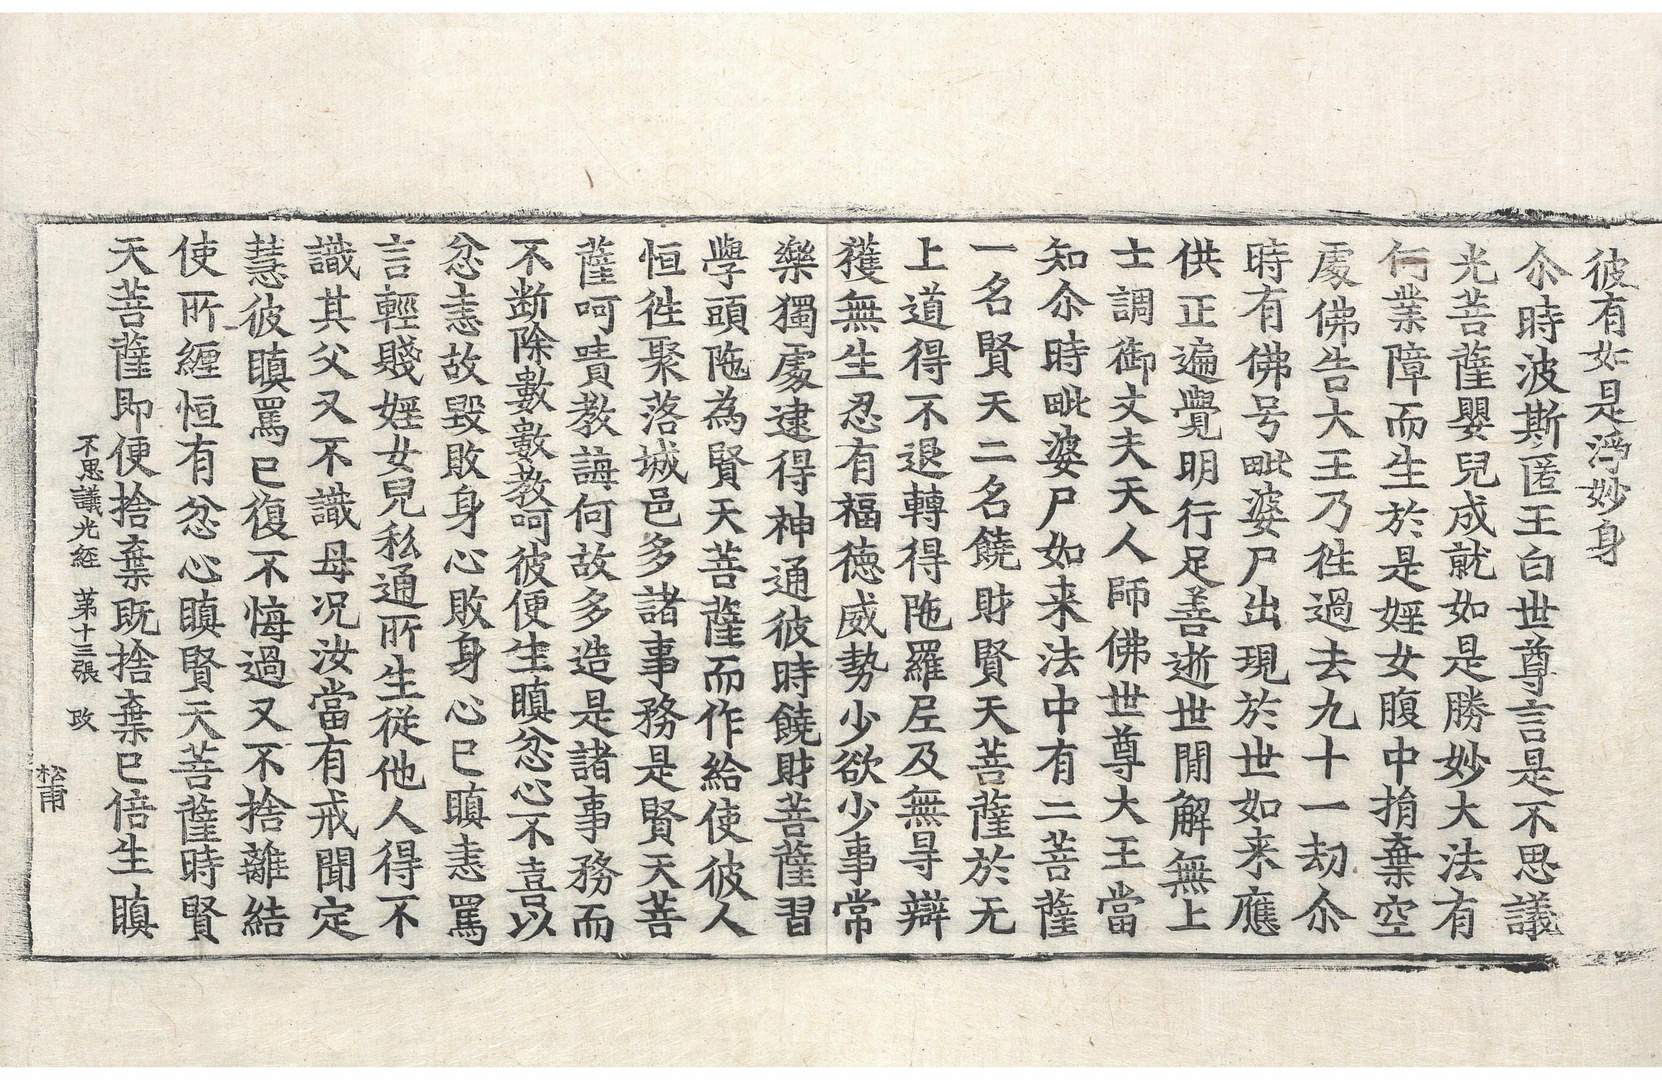 彼有如是淨妙身
尒時波斯匿王白世尊言是不思議
光菩薩嬰兒成就如是勝妙大法有
何業障而生於是婬女腹中捐棄空
處佛告大王乃徃過去九十一劫尒
時有佛号毗婆尸出現於世如来應
供正遍覺明行足善逝世閒解無上
士調御丈夫天人師佛世尊大王當
知尒時毗婆尸如来法中有二菩薩
一名賢天二名饒財賢天菩薩於无
上道得不退轉得陁羅尼及無㝵辯
獲無生忍有福德威勢少欲少事常
樂獨處逮得神通彼時饒財菩薩習
學頭陁為賢天菩薩而作給使彼人
恒徃聚落城邑多諸事務是賢天菩
薩呵嘖教誨何故多造是諸事務而
不断除數數教呵彼便生瞋忿心不喜以
忿恚故毀敗身心敗身心已瞋恚罵
言輕賤婬女兒私通所生從他人得不
識其父又不識母况汝當有戒聞定
慧彼瞋罵已復不悔過又不捨離結
使所纏恒有忿心瞋賢天菩薩時賢
天菩薩即便捨棄既捨棄已倍生瞋
不思議光經 苐十三張 改
松甫